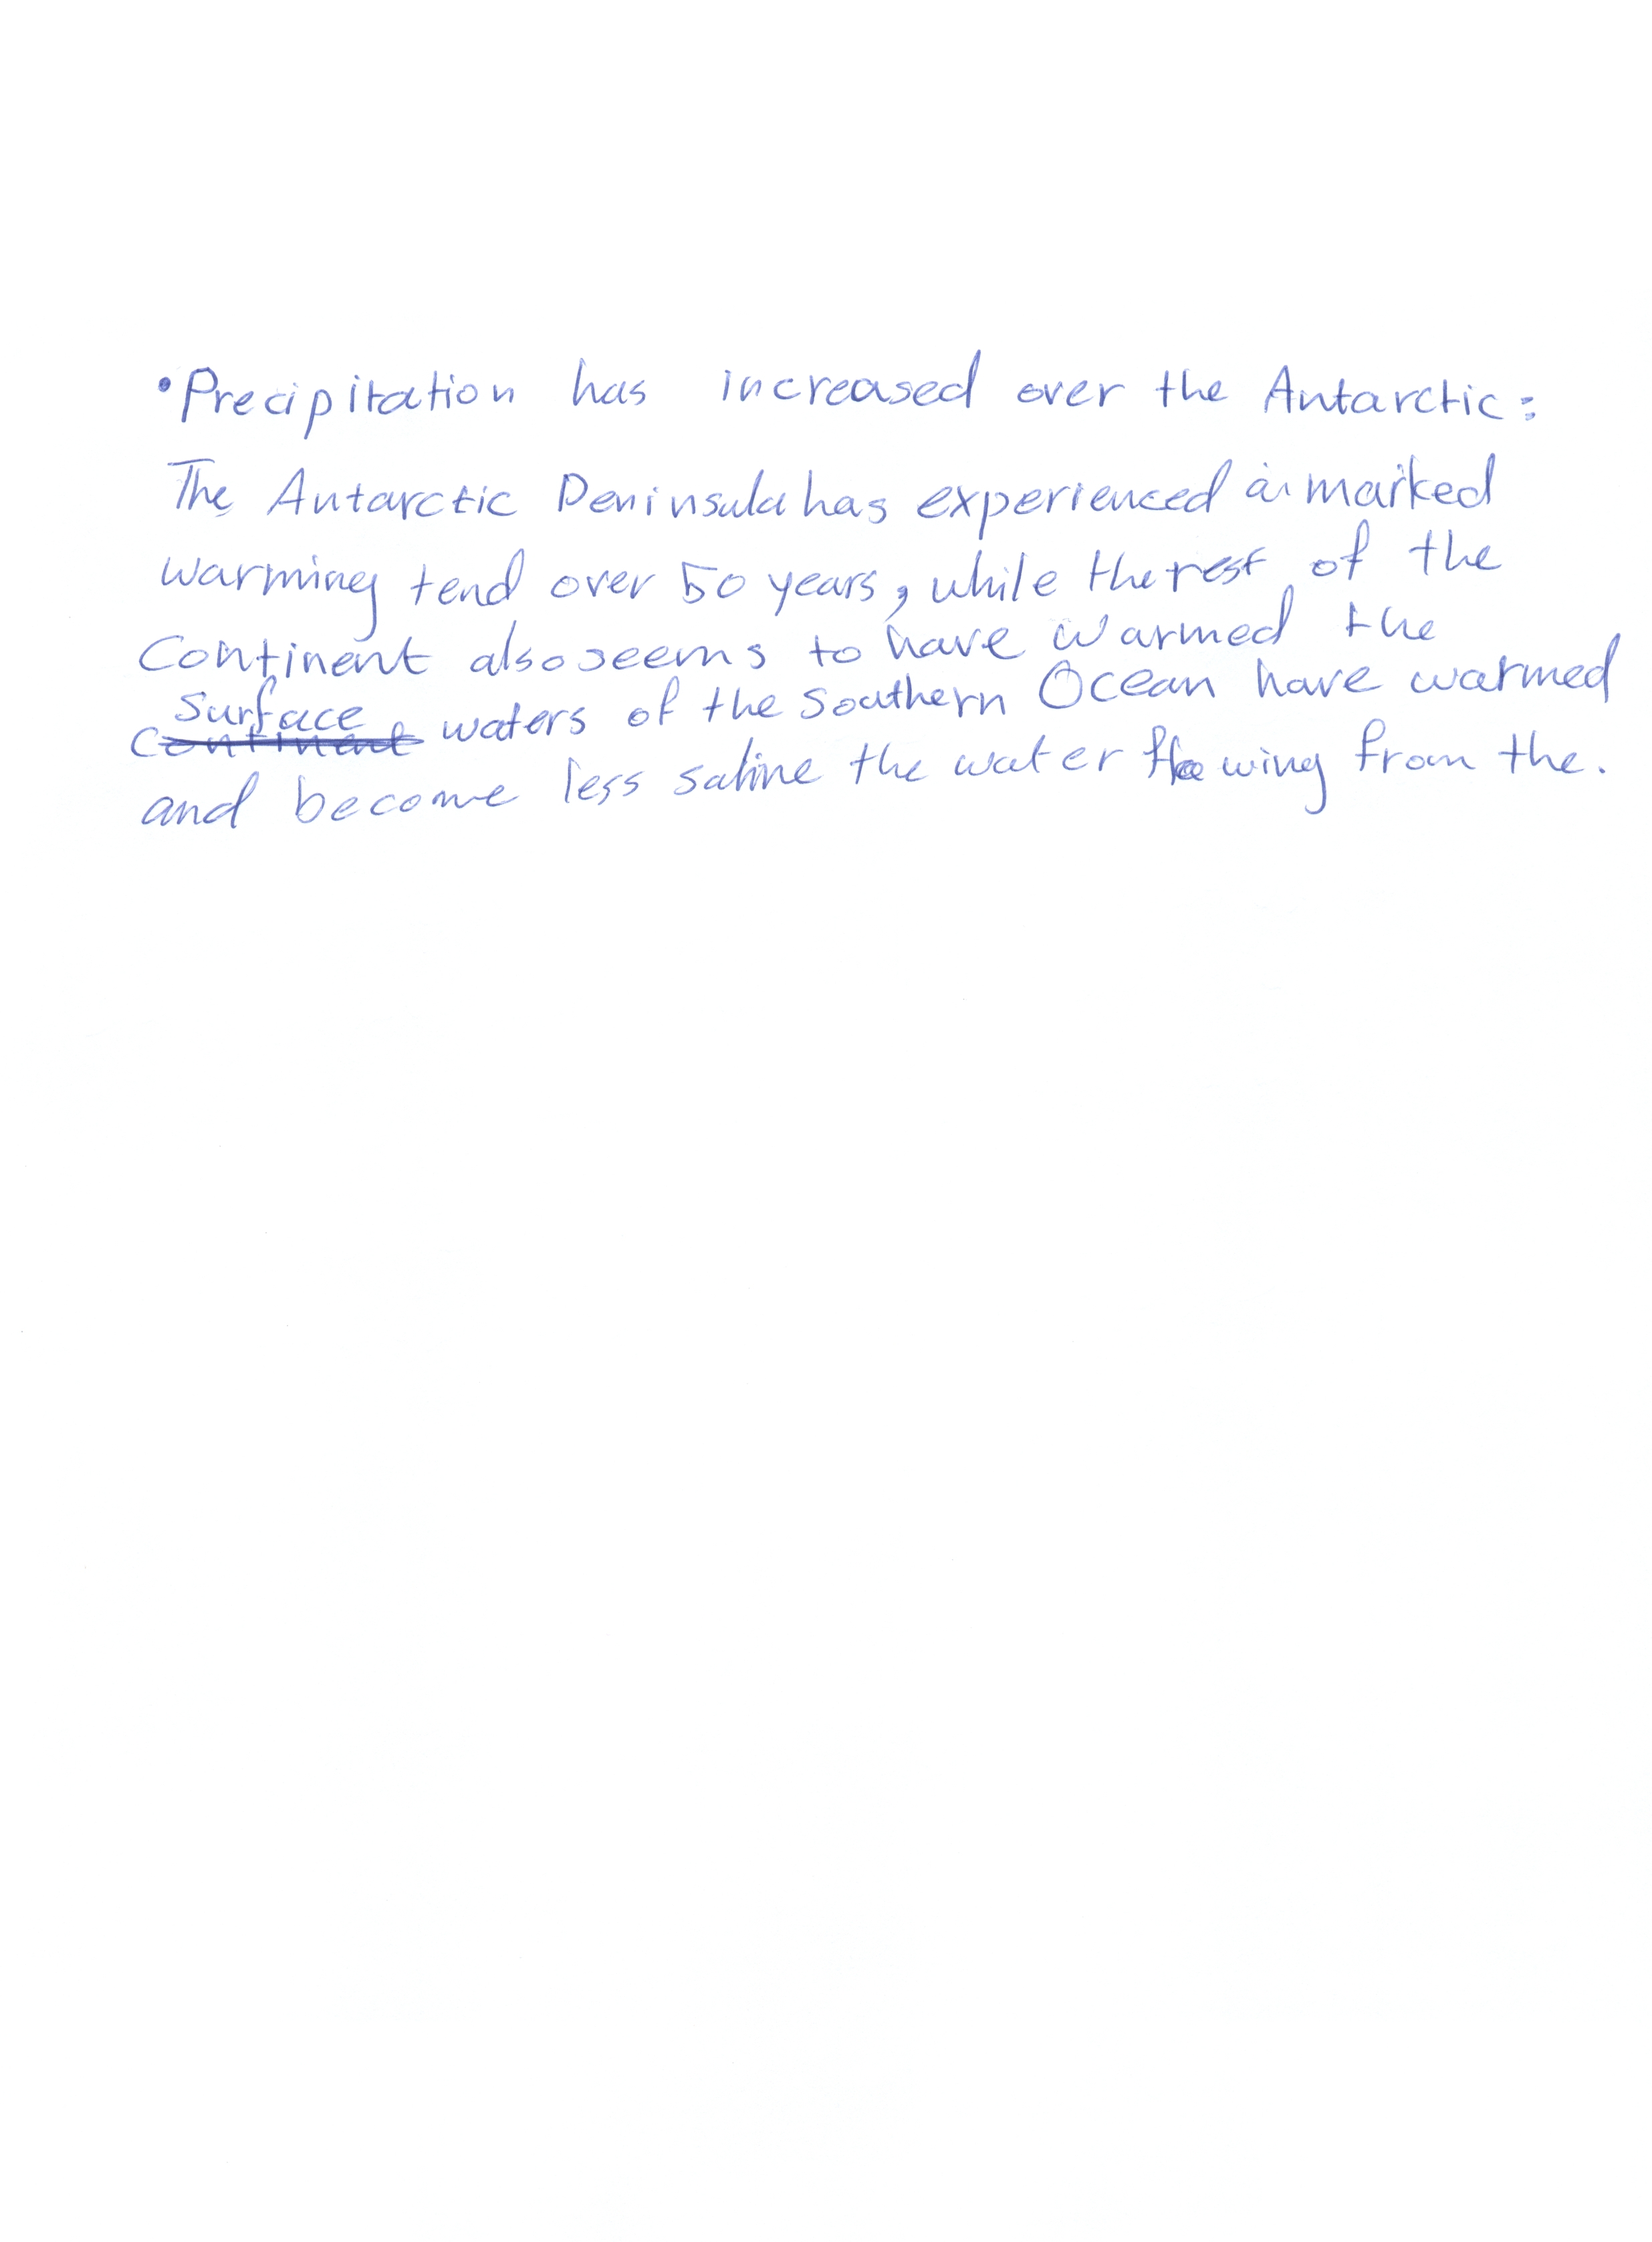 •Precipitation has increased over the Antarctic:
The Antarctic Peninsula has experienced a marked
warming tend over 50 years, while the rest of the
Continent also seems to have warmed the
surface
Continent waters of the Southern Ocean have warmed
and become less saline the water flowing from the.